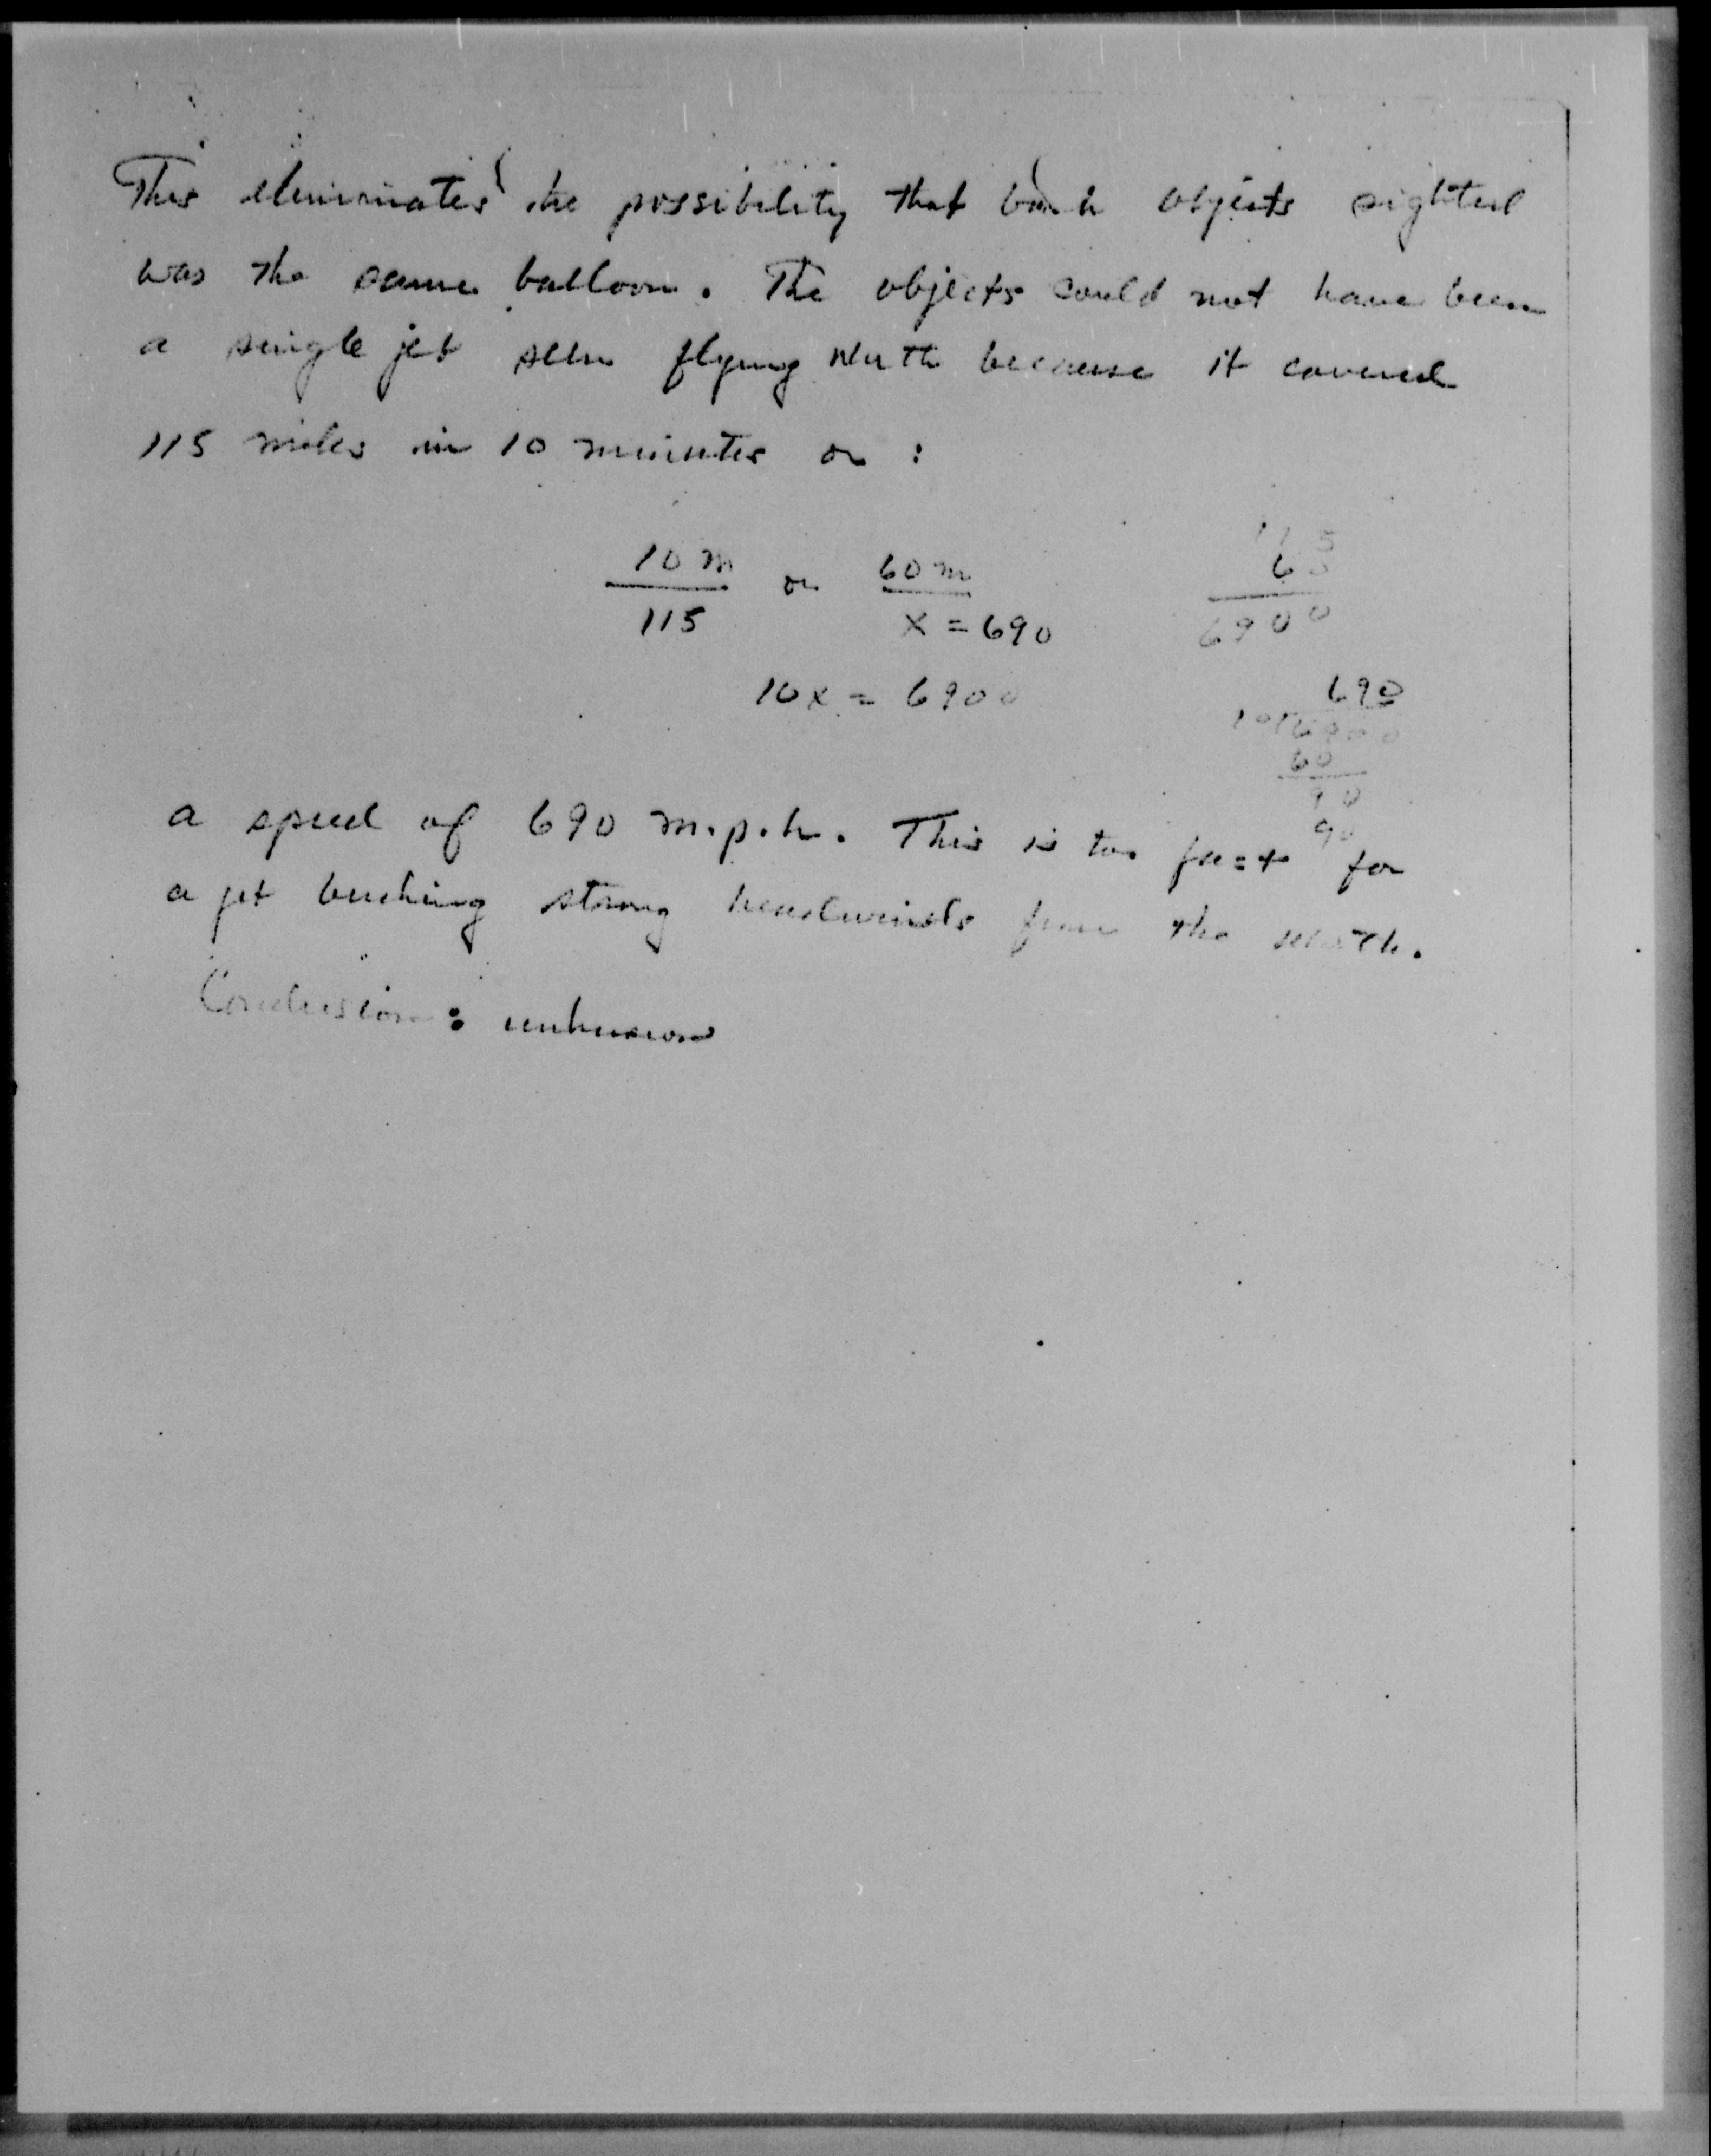 This eliminates the possibility that both objects sighted
was the same balloon. The objects could not have been
a single jet seen flying North because it covered
115 miles in 10 minutes or :
10 m or 60 m 115
115 x = 690 60
6900
10x = 6900 690
10 6900
60
90
90
a speed of 690 m.p.h. This is too fast for
a jet bucking strong headwinds from the
Conclusion: unknown